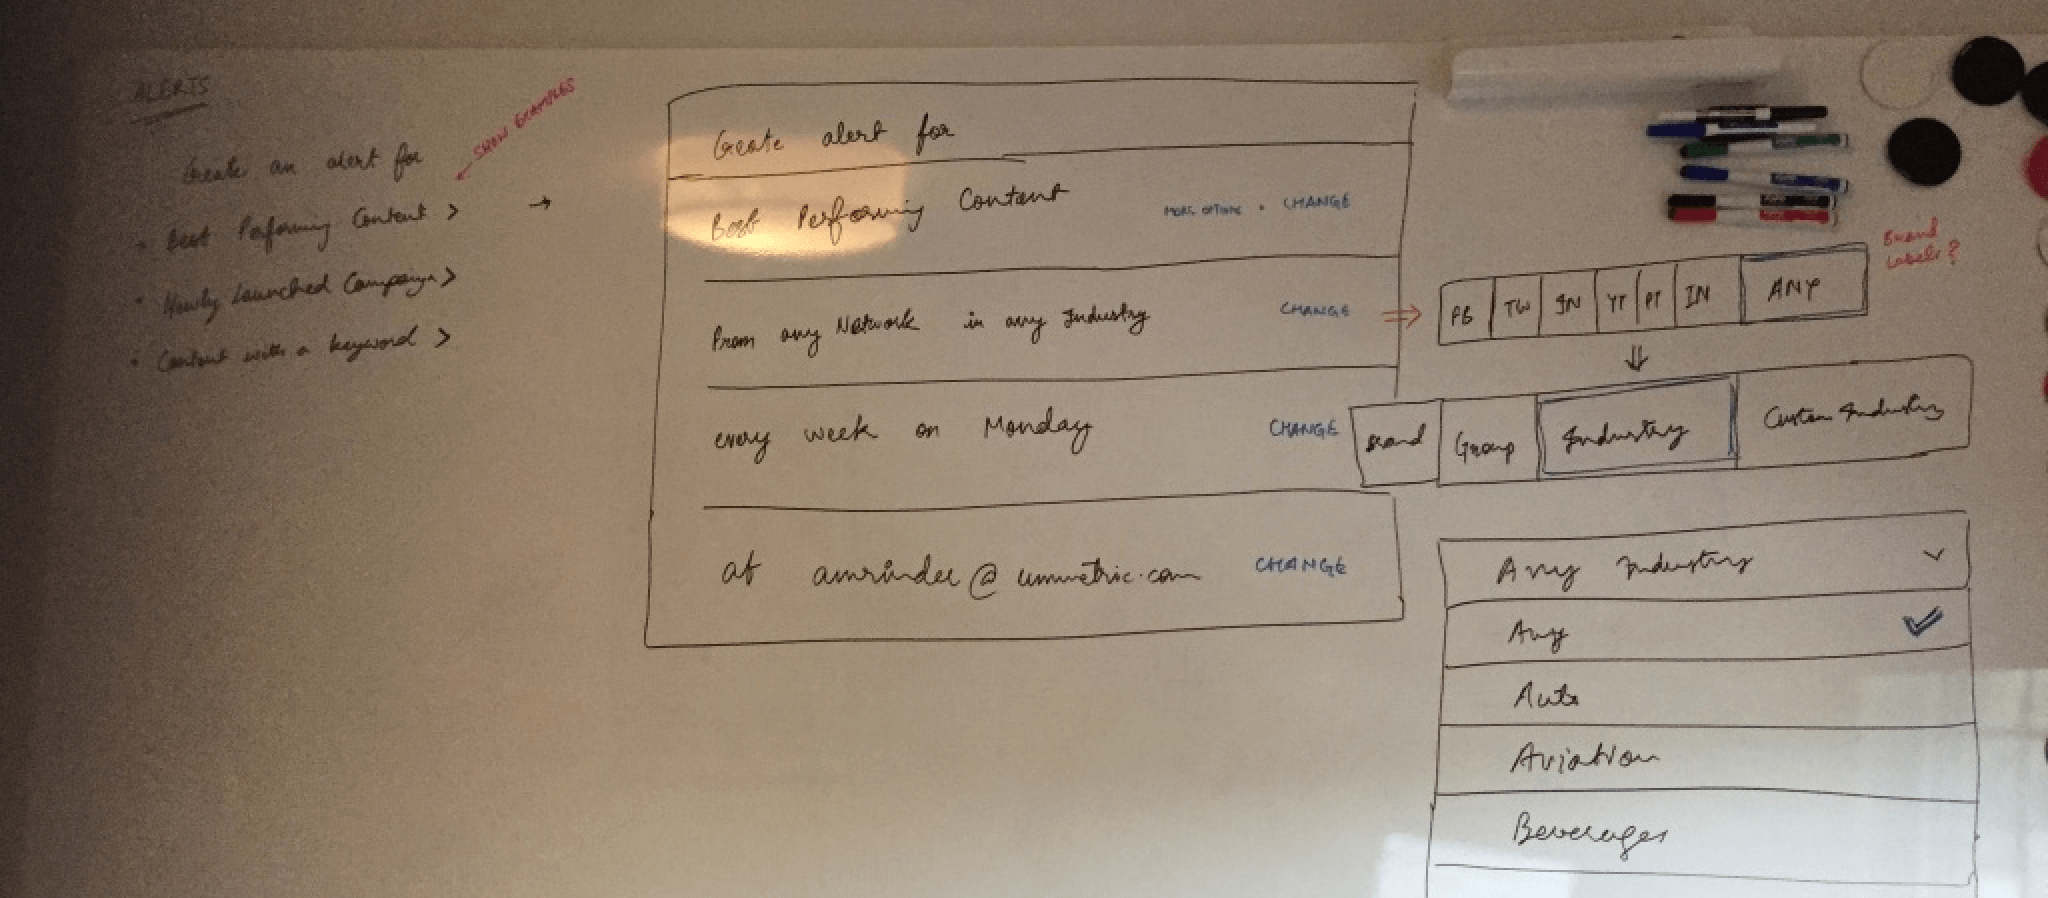 ALERTS
Create an alert for
SHOW EXAMPLES
• Best Performing Content >
• Newly Launched Campaign >
• Content with a keyword >
→
Create alert for
Best Performing Content MORE OPTIONS • CHANGE
From any Network in any Industry CHANGE
every week on Monday CHANGE
at CHANGE
FB TW IN YT PT IN ANY
Brand
Labels?
Brand Group Industry Custom Industry
Any Industry
Any
Auto
Aviation
Beverages